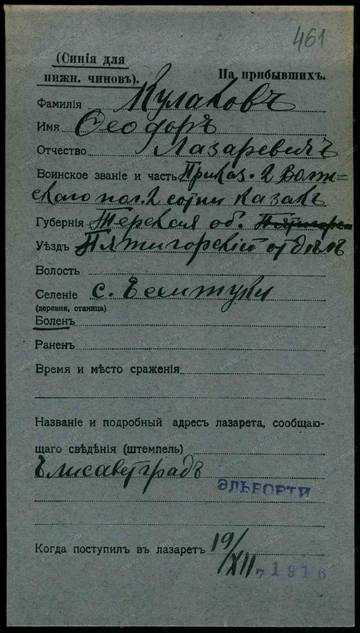 461
(Синія для
нижн. чиновъ).
На прибывшихъ.
Фамилія Кулаковъ
Имя Ѳеодоръ
Отчество Лазаревичъ
Воинское званіе и часть Приказ. 2 Волж-
скаго пол. 2 сотни казакъ
Губернія Терская об. Пятигорск
Уѣздъ Пятигорскій отдѣлъ
Волость
Селеніе с. Ессентуки
(деревня, станица)
Боленъ
Раненъ
Время и мѣсто сраженія
Названіе и подробный адресъ лазарета, сообщаю-
щаго свѣдѣнія (штемпель)
Елисаветградъ
ЭЛЬВОРТИ
Когда поступилъ въ лазаретъ 19/XII 1916